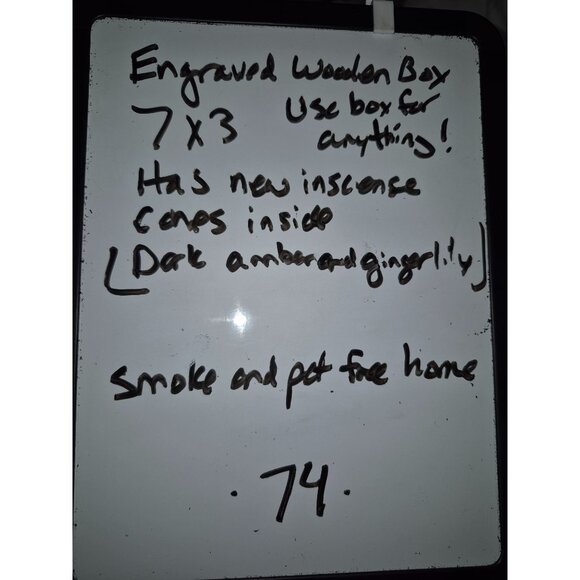 Engraved Wooden Box
7x3 Use box for
anything!
Has new inscense
cones inside
(Dark amber and gingerlily)
smoke and pet free home
. 74 .